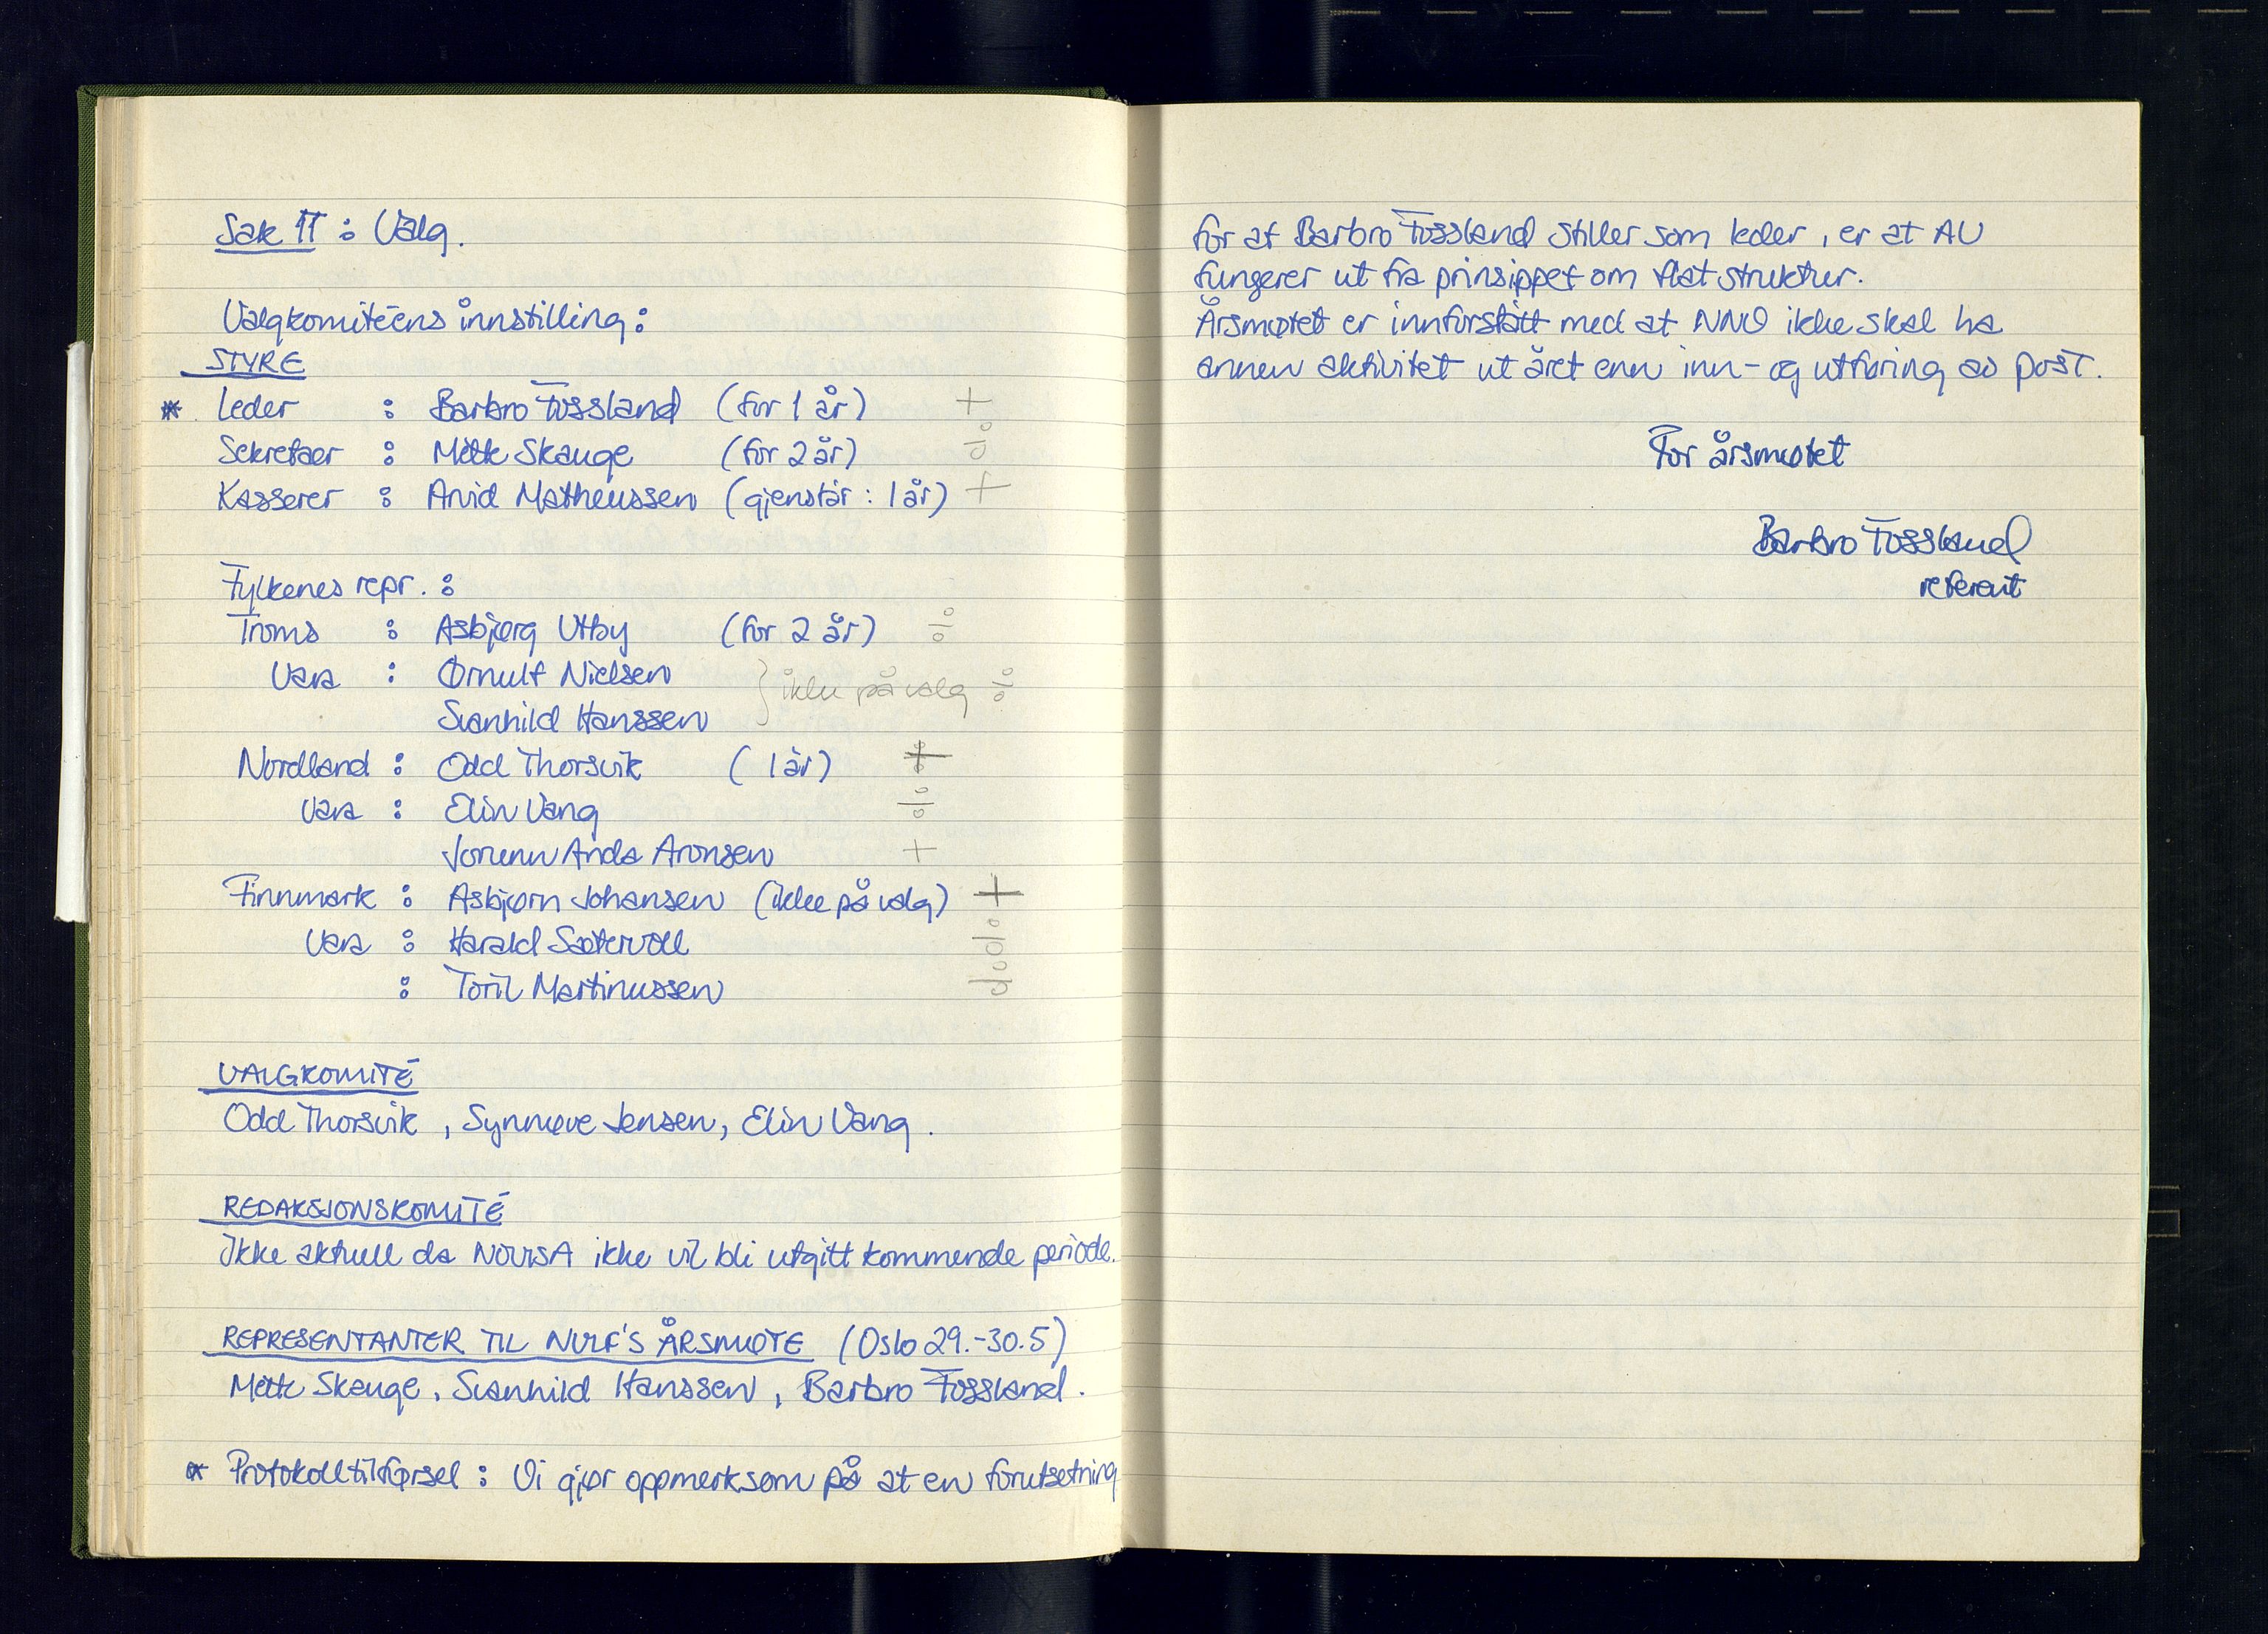 Sak 11 : Valg.
Valgkomitéens innstilling :
STYRE
* Leder : Barbro Fossland (for 1 år) +
Sekretær : Mette Skauge (for 2 år) %
Kasserer : Arvid Matheussen (gjenstår : 1 år) +
Fylkenes repr. :
Troms : Asbjørg Utby (for 2 år) %
Vara : Ørnulf Nielsen
} ikke på valg %
Svanhild Hanssen
Nordland : Odd Thorsvik (1 år) +
Vara : Elin Vang %
Jorunn Anda Aronsen +
Finnmark : Asbjørn Johansen (ikke på valg) +
Vara : Harald Sætervoll %
: Toril Martinussen %
VALGKOMITÉ
Odd Thorsvik, Synnøve Jensen, Elin Vang.
REDAKSJONSKOMITÉ
Ikke aktuell da NOVISA ikke vil bli utgitt kommende periode.
REPRESENTANTER TIL NVLF'S ÅRSMØTE (Oslo 29.-30.5)
Mette Skauge, Svanhild Hanssen, Barbro Fossland.
* Protokolltilførsel : Vi gjør oppmerksom på at en forutsetning
for at Barbro Fossland stiller som leder, er at AU
fungerer ut fra prinsippet om flat struktur.
Årsmøtet er innforstått med at NNV ikke skal ha
annen aktivitet ut året enn inn- og utføring av post.
For årsmøtet
Barbro Fossland
referent